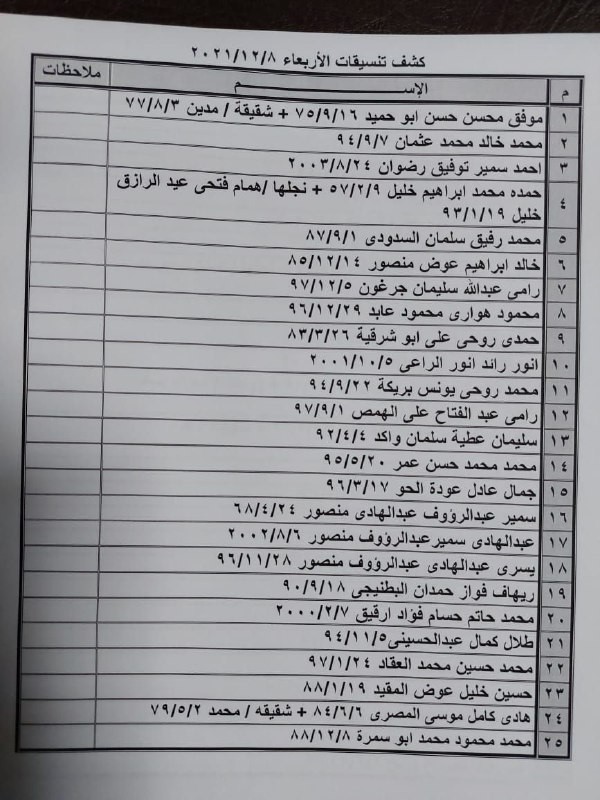 كشف تنسيقات الأربعاء ٢٠٢١/١٢/٨
م الإســـــم ملاحظات
١ موفق محسن حسن ابو حميد ٧٥/٩/١٦ + شقيقة / مدين ٧٧/٨/٣
٢ محمد خالد محمد عثمان ٩٤/٩/٧
٣ احمد سمير توفيق رضوان ٢٠٠٣/٨/٢٤
٤ حمده محمد ابراهيم خليل ٥٧/٢/٩ + نجلها /همام فتحى عبد الرازق
خليل ٩٣/١/١٩
٥ محمد رفيق سلمان السدودى ٨٧/٩/١
٦ خالد ابراهيم عوض منصور ٨٥/١٢/١٤
٧ رامى عبدالله سليمان جرغون ٩٧/١٢/٥
٨ محمود هوارى محمود عابد ٩٦/١٢/٢٩
٩ حمدى روحى على ابو شرقية ٨٣/٣/٢٦
١٠ انور رائد انور الراعى ٢٠٠١/١٠/٥
١١ محمد روحى يونس بريكة ٩٤/٩/٢٢
١٢ رامى عبد الفتاح على الهمص ٩٧/٩/١
١٣ سليمان عطية سلمان واكد ٩٢/٤/٤
١٤ محمد محمد حسن عمر ٩٥/٥/٢٠
١٥ جمال عادل عودة الحو ٩٦/٣/١٧
١٦ سمير عبدالرؤوف عبدالهادى منصور ٦٨/٤/٢٤
١٧ عبدالهادى سميرعبدالرؤوف منصور ٢٠٠٢/٨/٦
١٨ يسرى عبدالهادى عبدالرؤوف منصور ٩٦/١١/٢٨
١٩ ريهاف فواز حمدان البطنيجى ٩٠/٩/١٨
٢٠ محمد حاتم حسام فؤاد ارقيق ٢٠٠٠/٢/٧
٢١ طلال كمال عبدالحسينى ٩٤/١١/٥
٢٢ محمد حسين محمد العقاد ٩٧/١/٢٤
٢٣ حسين خليل عوض المقيد ٨٨/١/١٩
٢٤ هادى كامل موسى المصرى ٨٤/٦/٦ + شقيقه / محمد ٧٩/٥/٢
٢٥ محمد محمود محمد ابو سمرة ٨٨/١٢/٨